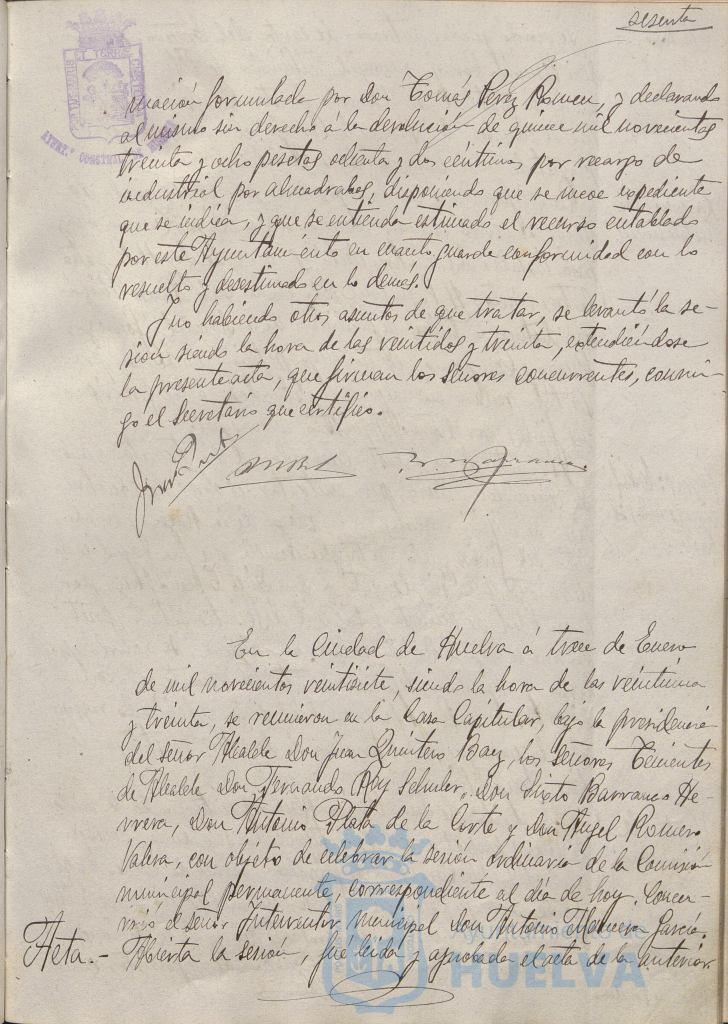 sesenta
mación formulada por Don Tomás Pérez Romeu, y declarando
al mismo sin derecho á la devolución de quince mil novecientas
treinta y ocho pesetas ochenta y dos céntimos por recargo de
industrial por almadrabas, disponiendo que se incoe expediente
que se indica, y que se entienda estimado el recurso entablado
por este Ayuntamiento en cuanto guarde conformidad con lo
resuelto y desestimado en lo demás.
Y no habiendo otros asuntos de que tratar, se levantó la se-
sión siendo la hora de las veintidos y treinta, extendiéndose
la presente acta, que firman los señores concurrentes, conmi-
go el Secretario que certifico.
En la Ciudad de Huelva á trece de Enero
de mil novecientos veintisiete, siendo la hora de las veintiuna
y treinta, se reunieron en la Casa Capitular, bajo la presidencia
del señor Alcalde Don Juan Quintero Baez, los señores Tenientes
de Alcalde Don Fernando Rey Schuler, Don Sixto Barranco He-
rrera, Don Antonio Plata de la Corte y Don Angel Romero
Valera, con objeto de celebrar la sesión ordinaria de la Comisión
municipal permanente, correspondiente al día de hoy. Concu-
rrió el señor Interventor municipal Don Antonio García.
Acta.- Abierta la sesión, fué leida y aprobada el acta de la anterior.
HUELVA